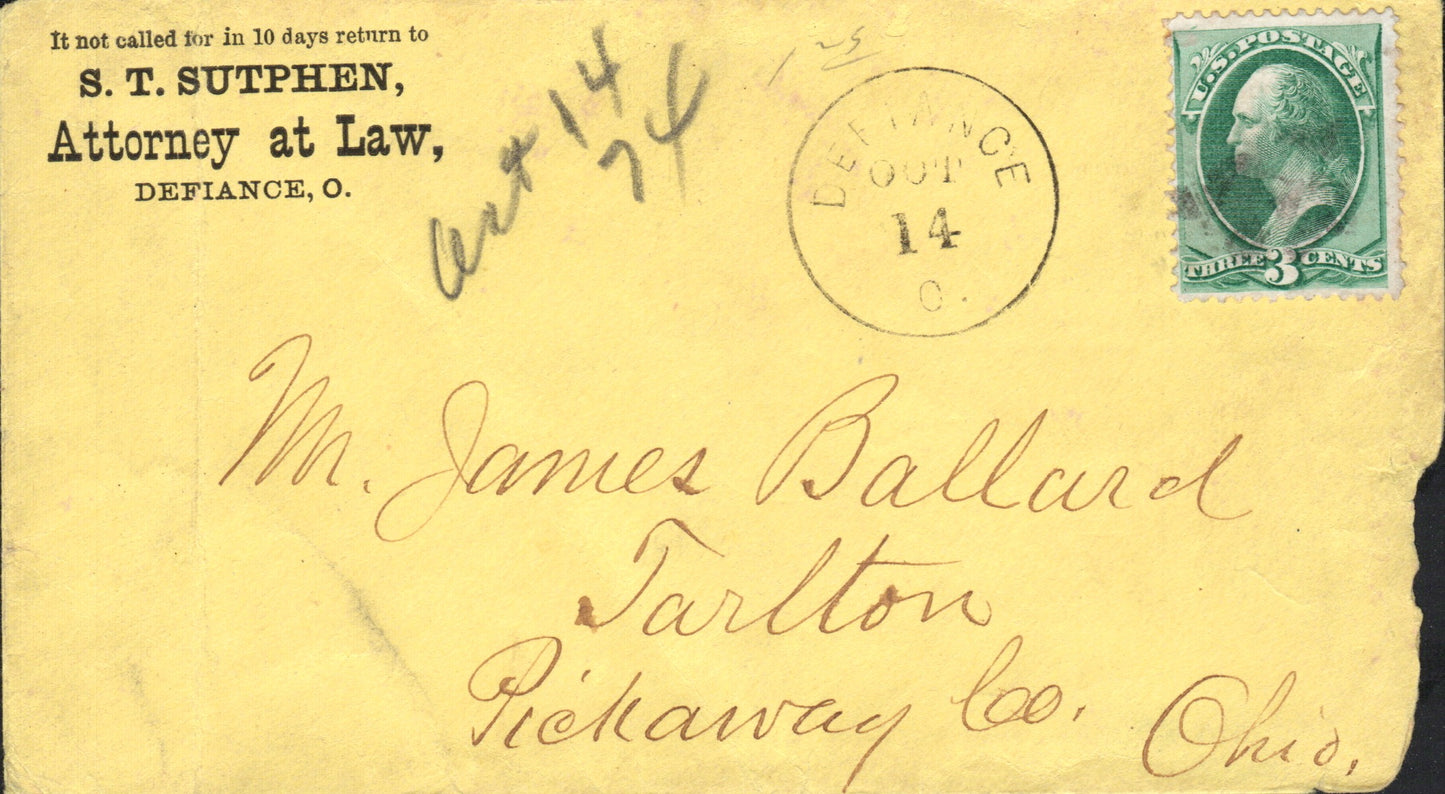 It not called for in 10 days return to
S. T. SUTPHEN,
Attorney at Law,
DEFIANCE, O.
Oct 14
74
DEFIANCE
OCT
14
O.
U.S. POSTAGE
THREE 3 CENTS
Mr. James Ballard
Tarlton
Pickaway Co. Ohio.